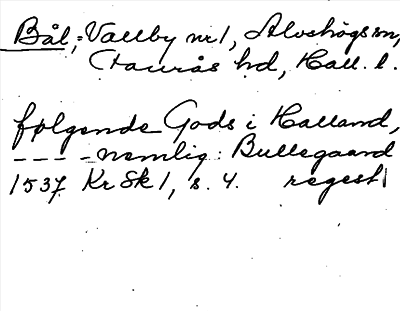 Bål, = Vallby nr 1, Alvshögs sn,
Faurås hd, Hall. l.
følgende Gods i Halland,
_ _ _ _ nemlig: Bullegaard
1537 KrSk 1, s. 4. regest